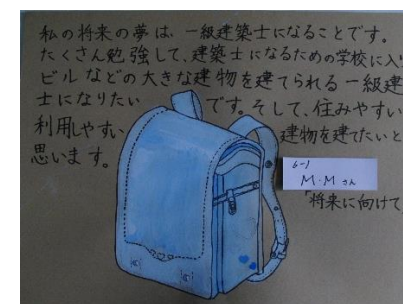 私の将来の夢は、一級建築士になることです。
たくさん勉強して、建築士になるための学校に入り
ビルなどの大きな建物を建てられる一級建
士になりたいです。そして、住みやすい
利用しやすい建物を建てたいと
思います。
6-1
M・Mさん
「将来に向けて